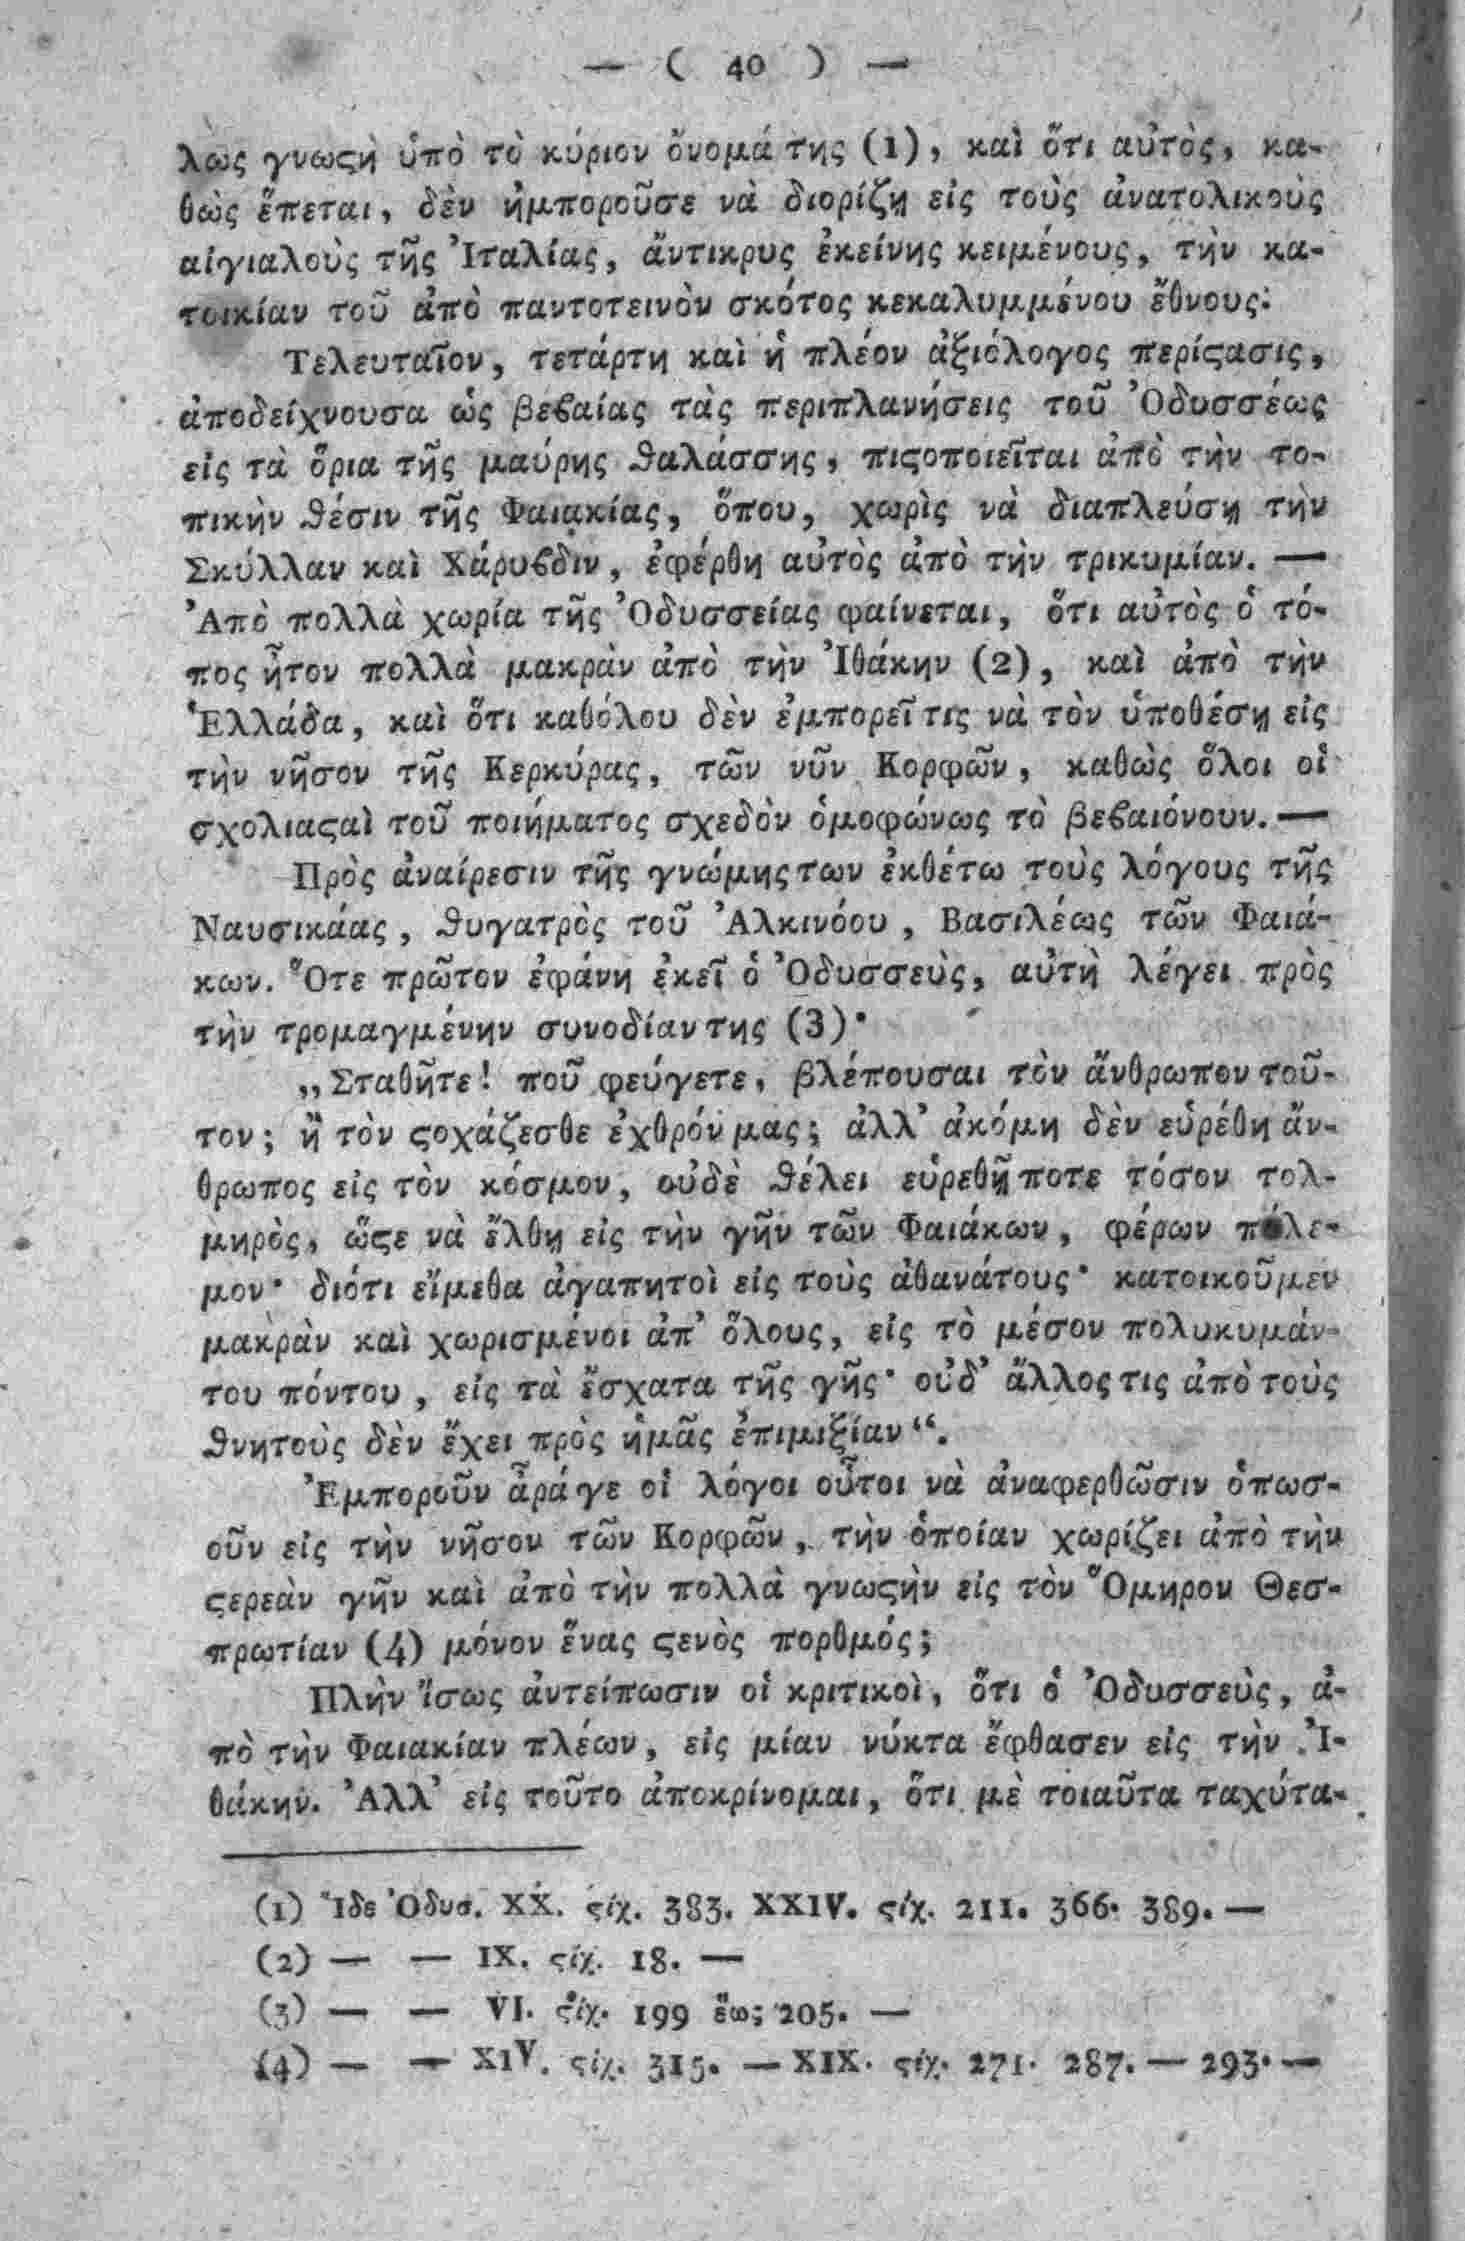 — ( 40 ) —
λως γνωϛὴ ὑπὸ τὸ κύριον ὄνομά της (1), καὶ ὅτι αὐτὸς, κα-
θὼς ἕπεται, δὲν ἠμποροῦσε νὰ διορίζῃ εἰς τοὺς ἀνατολικοὺς
αἰγιαλοὺς τῆς Ἰταλίας, ἄντικρυς ἐκείνης κειμένους, τὴν κα-
τοικίαν τοῦ ἀπὸ παντοτεινὸν σκότος κεκαλυμμένου ἔθνους:
Τελευταῖον, τετάρτη καὶ ἡ πλέον ἀξιόλογος περίϛασις,
ἀποδείχνουσα ὡς βεϐαίας τὰς περιπλανήσεις τοῦ Ὀδυσσέως
εἰς τὰ ὅρια τῆς μαύρης ϑαλάσσης, πιϛοποιεῖται ἀπὸ τὴν το-
πικὴν ϑέσιν τῆς Φαιακίας, ὅπου, χωρὶς νὰ διαπλεύσῃ τὴν
Σκύλλαν καὶ Χάρυϐδιν, ἐφέρθη αὐτὸς ἀπὸ τὴν τρικυμίαν. —
Ἀπὸ πολλὰ χωρία τῆς Ὀδυσσείας φαίνεται, ὅτι αὐτὸς ὁ τό-
πος ἦτον πολλὰ μακρὰν ἀπὸ τὴν Ἰθάκην (2), καὶ ἀπὸ τὴν
Ἑλλάδα, καὶ ὅτι καθόλου δὲν ἐμπορεῖ τις νὰ τὸν ὑποθέσῃ εἰς
τὴν νῆσον τῆς Κερκύρας, τῶν νῦν Κορφῶν, καθὼς ὅλοι οἱ
σχολιαϛαὶ τοῦ ποιήματος σχεδὸν ὁμοφώνως τὸ βεϐαιόνουν. —
Πρὸς ἀναίρεσιν τῆς γνώμης των ἐκθέτω τοὺς λόγους τῆς
Ναυσικάας, ϑυγατρὸς τοῦ Ἀλκινόου, Βασιλέως τῶν Φαιά-
κων. Ὅτε πρῶτον ἐφάνη ἐκεῖ ὁ Ὀδυσσεὺς, αὐτὴ λέγει πρὸς
τὴν τρομαγμένην συνοδίαν της (3)·
„Σταθῆτε! ποῦ φεύγετε, βλέπουσαι τὸν ἄνθρωπον τοῦ-
τον; ἢ τὸν ϛοχάζεσθε ἐχθρόν μας; ἀλλ’ ἀκόμη δὲν εὑρέθη ἄν-
θρωπος εἰς τὸν κόσμον, οὐδὲ ϑέλει εὑρεθῇ ποτε τόσον τολ-
μηρὸς, ὥϛε νὰ ἔλθῃ εἰς τὴν γῆν τῶν Φαιάκων, φέρων πόλε-
μον· διότι εἴμεθα ἀγαπητοὶ εἰς τοὺς ἀθανάτους· κατοικοῦμεν
μακρὰν καὶ χωρισμένοι ἀπ’ ὅλους, εἰς τὸ μέσον πολυκυμάν-
του πόντου, εἰς τὰ ἔσχατα τῆς γῆς· οὐδ’ ἄλλος τις ἀπὸ τοὺς
ϑνητοὺς δὲν ἔχει πρὸς ἡμᾶς ἐπιμιξίαν“.
Ἐμποροῦν ἆρά γε οἱ λόγοι οὗτοι νὰ ἀναφερθῶσιν ὁπωσ-
οῦν εἰς τὴν νῆσον τῶν Κορφῶν, τὴν ὁποίαν χωρίζει ἀπὸ τὴν
ϛερεὰν γῆν καὶ ἀπὸ τὴν πολλὰ γνωϛὴν εἰς τὸν Ὅμηρον Θεσ-
πρωτίαν (4) μόνον ἕνας ϛενὸς πορθμός;
Πλὴν ἴσως ἀντείπωσιν οἱ κριτικοὶ, ὅτι ὁ Ὀδυσσεὺς, ἀ-
πὸ τὴν Φαιακίαν πλέων, εἰς μίαν νύκτα ἔφθασεν εἰς τὴν Ἰ-
θάκην. Ἀλλ’ εἰς τοῦτο ἀποκρίνομαι, ὅτι μὲ τοιαῦτα ταχύτα-
(1) Ἴδε Ὀδυσ. XX. ϛίχ. 383. XXIV. ϛίχ. 211. 366. 389. —
(2) — — IX. ϛίχ. 18. —
(3) — — VI. ϛίχ. 199 ἕως 205. —
(4) — — XIV. ϛίχ. 315. — XIX. ϛίχ. 271. 287. — 293. —